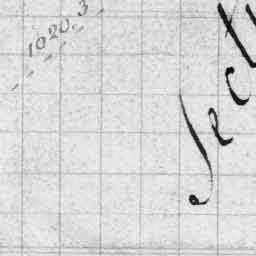 1020.3
Secti